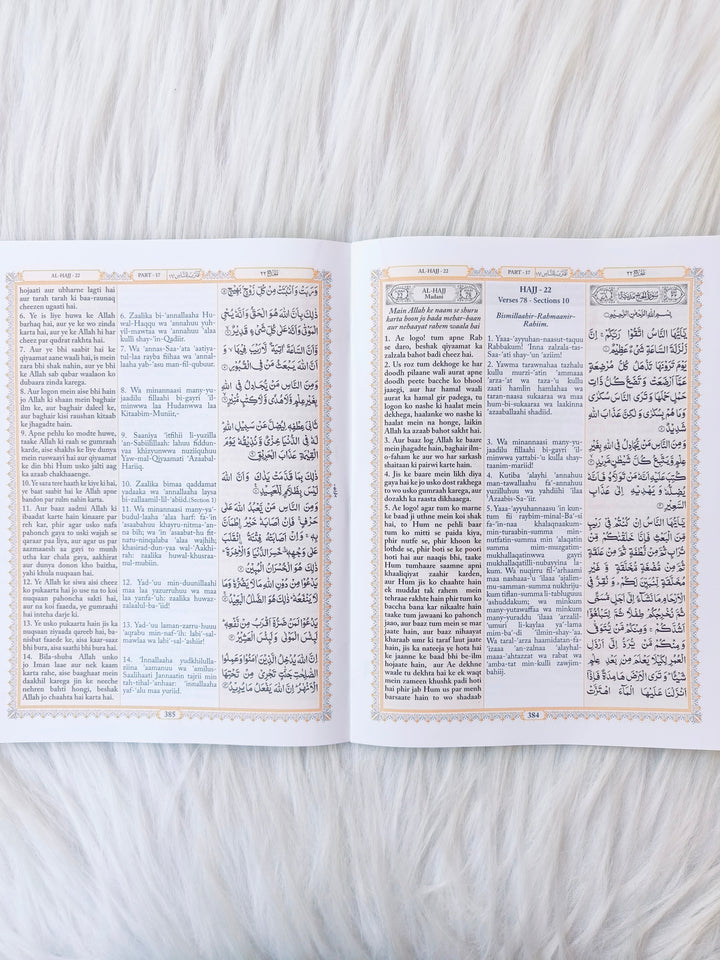 AL-HAJJ - 22
PART - 17
اقترب للناس ١٧
الحج ٢٢
22
AL-HAJJ
Madani
78
Main Allah ke naam se shuru
karta hoon jo bada mehar-baan
aur nehaayat rahem waala hai
1. Ae logo! tum apne Rab
se daro, beshak qiyaamat ka
zalzala bahot badi cheez hai.
2. Us roz tum dekhoge ke har
doodh pilaane wali aurat apne
doodh peete bacche ko bhool
jaaegi, aur har hamal waali
aurat ka hamal gir padega, tu
logon ko nashe ki haalat mein
dekhega, haalanke wo nashe ki
haalat mein na honge, laikin
Allah ka azaab bahot sakht hai.
3. Aur baaz log Allah ke baare
mein jhagadte hain, baghair ilm-
o-faham ke aur wo har sarkash
shaitaan ki pairwi karte hain.
4. Jis ke baare mein likh diya
gaya hai ke jo usko dost rakhega
to wo usko gumraah karega, aur
dozakh ka raasta dikhaaega.
5. Ae logo! agar tum ko marne
ke baad ji uthne mein koi shak
hai, to Hum ne pehli baar
tum ko mitti se paida kiya,
phir nutfe se, phir khoon ke
lothde se, phir boti se ke poori
hoti hai aur naaqis bhi hai, taak
Hum tumhaare saamne apni
khaaliqiyat zaahir karden,
aur Hum jis ko chaahte hain
ek muddat tak rahem mein
tehraae rakhte hain phir tum ko
baccha bana kar nikaalte hain
taake tum jawaani ko pahonch
jaao, aur baaz tum mein se mar
jaate hain, aur baaz nihaayat
kharaab umr ki taraf laut jaate
hain, jis ka nateeja ye hota hai
ke jaanne ke baad bhi be-ilm
hojaate hain, aur Ae dekhne
waale tu dekhta hai ke ek waqt
mein zameen khushk padi hoti
hai phir jab Hum us par menh
barsaate hain to wo shadaab
HAJJ - 22
Verses 78 - Sections 10
Bismillaahir-Rahmaanir-
Rahiim.
1. Yaaa-'ayyuhan-naasut-taquu
Rabbakum! 'Inna zalzala-tas-
Saa-'ati shay-'un 'aziim!
2. Yawma tarawnahaa tazhalu
kullu murzi-'atin 'ammaaa
'arza-'at wa taza-'u kullu
zaati hamlin hamlahaa wa
taran-naasa sukaaraa wa maa
hum-bi-sukaaraa wa laakinna
'azaaballaahi shadiid.
3. Wa minannaasi many-yu-
jaadilu fillaahi bi-gayri 'il-
minwwa yattabi-'u kulla shay-
taanim-mariid!
4. Kutiba 'alayhi 'annahuu
man-tawallaahu fa-'annahuu
yuzilluhuu wa yahdiihi 'ilaa
'Azaabis-Sa-'iir.
5. Yaaa-'ayyuhannaasu 'in kun-
tum fii raybim-minal-Ba'-si
fa-'in-naa khalaqnaakum-
min-turaabin-summa min-
nutfatin-summa min 'alaqatin
summa mim-muzgatim-
mukhallaqatinwwa gayri
mukhallaqatilli-nubayyina la-
kum. Wa nuqirru fil-'arhaami
maa nashaaa-'u 'ilaaa 'ajalim-
mu-samman-summa nukhriju-
kum tiflan-summa li-tablaguuu
'ashuddakum; wa minkum-
many-yutawaffaa wa minkum
many-yuraddu 'ilaaa 'arzalil-
'umuri li-kaylaa ya'-lama
mim-ba'-di 'ilmin-shay-'aa.
Wa taral-'arza haamidatan-fa-
'izaaa 'an-zalnaa 'alayhal-
maaa-'ahtazzat wa rabat wa
'amba-tat min-kulli zawjim-
bahiij.
بِسْمِ اللّٰهِ الرَّحْمٰنِ الرَّحِيْمِ
يٰٓاَيُّهَا النَّاسُ اتَّقُوْا رَبَّكُمْ ۚ اِنَّ
زَلْزَلَةَ السَّاعَةِ شَيْءٌ عَظِيْمٌ ①
يَوْمَ تَرَوْنَهَا تَذْهَلُ كُلُّ مُرْضِعَةٍ
عَمَّآ اَرْضَعَتْ وَتَضَعُ كُلُّ ذَاتِ
حَمْلٍ حَمْلَهَا وَتَرَى النَّاسَ سُكٰرٰى
وَمَا هُمْ بِسُكٰرٰى وَلٰكِنَّ عَذَابَ اللّٰهِ
شَدِيْدٌ ②
وَمِنَ النَّاسِ مَنْ يُّجَادِلُ فِي اللّٰهِ بِغَيْرِ
عِلْمٍ وَّيَتَّبِعُ كُلَّ شَيْطٰنٍ مَّرِيْدٍ ③
كُتِبَ عَلَيْهِ اَنَّهٗ مَنْ تَوَلَّاهُ فَاَنَّهٗ
يُضِلُّهٗ وَيَهْدِيْهِ اِلٰى عَذَابِ
السَّعِيْرِ ④
يٰٓاَيُّهَا النَّاسُ اِنْ كُنْتُمْ فِيْ رَيْبٍ
مِّنَ الْبَعْثِ فَاِنَّا خَلَقْنٰكُمْ مِّنْ
تُرَابٍ ثُمَّ مِنْ نُّطْفَةٍ ثُمَّ مِنْ عَلَقَةٍ
ثُمَّ مِنْ مُّضْغَةٍ مُّخَلَّقَةٍ وَّغَيْرِ
مُخَلَّقَةٍ لِّنُبَيِّنَ لَكُمْ ۭ وَنُقِرُّ فِي
الْاَرْحَامِ مَا نَشَآءُ اِلٰٓى اَجَلٍ مُّسَمًّى
ثُمَّ نُخْرِجُكُمْ طِفْلًا ثُمَّ لِتَبْلُغُوْٓا
اَشُدَّكُمْ ۚ وَمِنْكُمْ مَّنْ يُّتَوَفّٰى
وَمِنْكُمْ مَّنْ يُّرَدُّ اِلٰٓى اَرْذَلِ
الْعُمُرِ لِكَيْلَا يَعْلَمَ مِنْۢ بَعْدِ عِلْمٍ
شَيْـًٔا ۭ وَتَرَى الْاَرْضَ هَامِدَةً فَاِذَآ
اَنْزَلْنَا عَلَيْهَا الْمَآءَ اهْتَزَّتْ
384
AL-HAJJ - 22
PART - 17
اقترب للناس ١٧
الحج ٢٢
hojaati aur ubharne lagti hai
aur tarah tarah ki baa-raunaq
cheezen ugaati hai.
6. Ye is liye huwa ke Allah
barhaq hai, aur ye ke wo zinda
karta hai, aur ye ke Allah hi har
cheez par qudrat rakhta hai.
7. Aur ye bhi saabit hai ke
qiyaamat aane waadi hai, is mein
zara bhi shak nahin, aur ye bhi
ke Allah sab qabar waalaon ko
dubaara zinda karega.
8. Aur logon mein aise bhi hain
jo Allah ki shaan mein baghair
ilm ke, aur baghair daleel ke,
aur baghair kisi raushan kitaab
ke jhagadte hain.
9. Apne pehlu ko modte huwe,
taake Allah ki raah se gumraah
karde, aise shakhs ke liye dunya
mein ruswaayi hai aur qiyaamat
ke din bhi Hum usko jalti aag
ka azaab chakhaaenge.
10. Ye saza tere haath ke kiye ki hai,
ye baat saabit hai ke Allah apne
bandon par zulm nahin karta.
11. Aur baaz aadmi Allah ki
ibaadat karte hain kinaare par
reh kar, phir agar usko nafa
pahonch gaya to uski wajah se
qaraar paa liya, aur agar us par
aazmaaesh aa gayi to munh
utha kar chala gaya, aakhirat
aur dunya donon kho baitha,
yahi khula nuqsaan hai.
12. Ye Allah ke siwa aisi cheez
ko pukaarta hai jo use na to koi
nuqsaan pahoncha sakti hai,
aur na koi faaeda, ye gumraahi
hai inteha darje ki.
13. Ye usko pukaarta hain jis ka
nuqsaan ziyaada qareeb hai, ba-
nisbat faaede ke, aisa kaar-saaz
bhi bura, aisa saathi bhi bura hai.
14. Bila-shuba Allah unko
jo Iman laae aur nek kaam
karta rahe, aise baaghaat mein
daakhil karega jin ke neeche
nehren bahti hongi, beshak
Allah jo chaahta hai karta hai.
6. Zaalika bi-'annallaaha Hu-
wal-Haqqu wa 'annahuu yuh-
yil-mawtaa wa 'annahuu 'alaa
kulli shay-'in-Qadiir.
7. Wa 'annas-Saa-'ata 'aatiya-
tul-laa rayba fiihaa wa 'annal-
laaha yab-'asu man-fil-qubuur.
8. Wa minannaasi many-yu-
jaadilu fillaahi bi-gayri 'il-
minwwa laa Hudanwwa laa
Kitaabim-Muniir,-
9. Saaniya 'itfihii li-yuzilla
'an-Sabiilillaah: lahuu fiddun-
yaa khizyunwwa nuziiquhuu
Yaw-mal-Qiyaamati 'Azaabal-
Hariiq.
10. Zaalika bimaa qaddamat
yadaaka wa 'annallaaha laysa
bi-zallaamil-lil-'abiid. (Section 1)
11. Wa minannaasi many-ya'-
budul-laaha 'alaa harf: fa-'in
'asaabahuu khayru-nitma-'an-
na bih; wa 'in 'asaabat-hu fit-
natu-ninqalaba 'alaa wajhih;
khasirad-dun-yaa wal-'Aakhi-
rah: zaalika huwal-khusraa-
nul-mubiin!
12. Yad-'uu min-duunillaahi
maa laa yazurruhuu wa maa
laa yanfa-'uh: zaalika huwaz-
zalaalul-ba-'iid!
13. Yad-'uu laman-zarru-huuu
'aqrabu min-naf-'ih: labi'-sal-
mawlaa wa labi'-sal-'ashiir!
14. 'Innallaaha yudkhilulla-
ziina 'aamanuu wa 'amilus-
Saalihaati Jannaatin tajrii min
tah-tihal-'anhaar: 'innallaaha
yaf-'alu maa yuriid.
وَرَبَتْ وَاَنْۢبَتَتْ مِنْ كُلِّ زَوْجٍۢ بَهِيْجٍ ⑤
ذٰلِكَ بِاَنَّ اللّٰهَ هُوَ الْحَقُّ وَاَنَّهٗ يُحْيِ
الْمَوْتٰى وَاَنَّهٗ عَلٰى كُلِّ شَيْءٍ قَدِيْرٌ ⑥
وَّاَنَّ السَّاعَةَ اٰتِيَةٌ لَّا رَيْبَ فِيْهَا ۙ وَ
اَنَّ اللّٰهَ يَبْعَثُ مَنْ فِي الْقُبُوْرِ ⑦
وَمِنَ النَّاسِ مَنْ يُّجَادِلُ فِي اللّٰهِ
بِغَيْرِ عِلْمٍ وَّلَا هُدًى وَّلَا كِتٰبٍ مُّنِيْرٍ ⑧
ثَانِيَ عِطْفِهٖ لِيُضِلَّ عَنْ سَبِيْلِ اللّٰهِ ۭ
لَهٗ فِي الدُّنْيَا خِزْيٌ وَّنُذِيْقُهٗ يَوْمَ
الْقِيٰمَةِ عَذَابَ الْحَرِيْقِ ⑨
ذٰلِكَ بِمَا قَدَّمَتْ يَدٰكَ وَاَنَّ اللّٰهَ
لَيْسَ بِظَلَّامٍ لِّلْعَبِيْدِ ⑩
وَمِنَ النَّاسِ مَنْ يَّعْبُدُ اللّٰهَ عَلٰى
حَرْفٍ ۚ فَاِنْ اَصَابَهٗ خَيْرُ ۨاطْمَاَنَّ
بِهٖ ۚ وَاِنْ اَصَابَتْهُ فِتْنَةُ ۨانْقَلَبَ
عَلٰى وَجْهِهٖ ۣ خَسِرَ الدُّنْيَا وَالْاٰخِرَةَ ۭ
ذٰلِكَ هُوَ الْخُسْرَانُ الْمُبِيْنُ ⑪
يَدْعُوْا مِنْ دُوْنِ اللّٰهِ مَا لَا يَضُرُّهٗ وَمَا
لَا يَنْفَعُهٗ ۭ ذٰلِكَ هُوَ الضَّلٰلُ الْبَعِيْدُ ⑫
يَدْعُوْا لَمَنْ ضَرُّهٗٓ اَقْرَبُ مِنْ نَّفْعِهٖ ۭ
لَبِئْسَ الْمَوْلٰى وَلَبِئْسَ الْعَشِيْرُ ⑬
اِنَّ اللّٰهَ يُدْخِلُ الَّذِيْنَ اٰمَنُوْا وَعَمِلُوا
الصّٰلِحٰتِ جَنّٰتٍ تَجْرِيْ مِنْ تَحْتِهَا
الْاَنْهٰرُ ۭ اِنَّ اللّٰهَ يَفْعَلُ مَا يُرِيْدُ ⑭
385